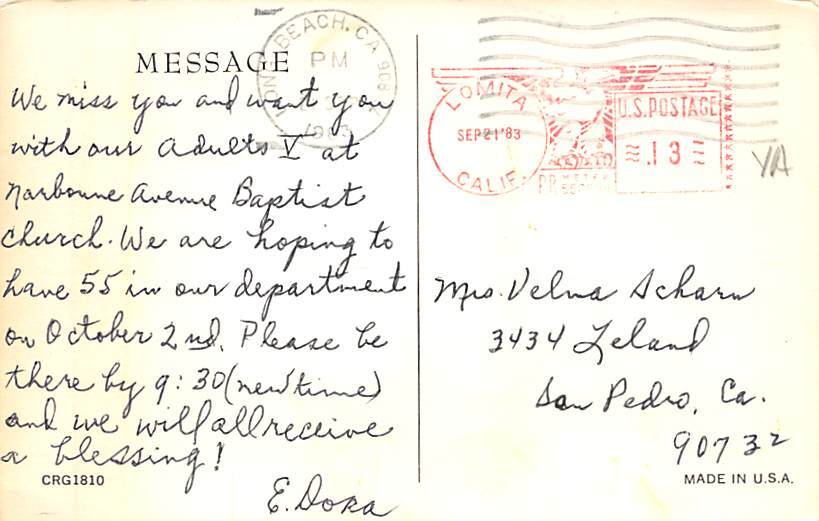 MESSAGE
We miss you and want you
with our Adults V at
Narbonne Avenue Baptist
Church. We are hoping to
have 55 in our department
on October 2nd. Please be
there by 9:30 (new time)
and we will all receive
a blessing!
E. Dora
CRG1810
LONG BEACH, CA 908
PM
1983
LOMITA
SEP 21 '83
CALIF.
U.S. POSTAGE
.13
PB METER
VA
Mrs. Velma Scharn
3434 Leland
San Pedro, Ca.
90732
MADE IN U.S.A.